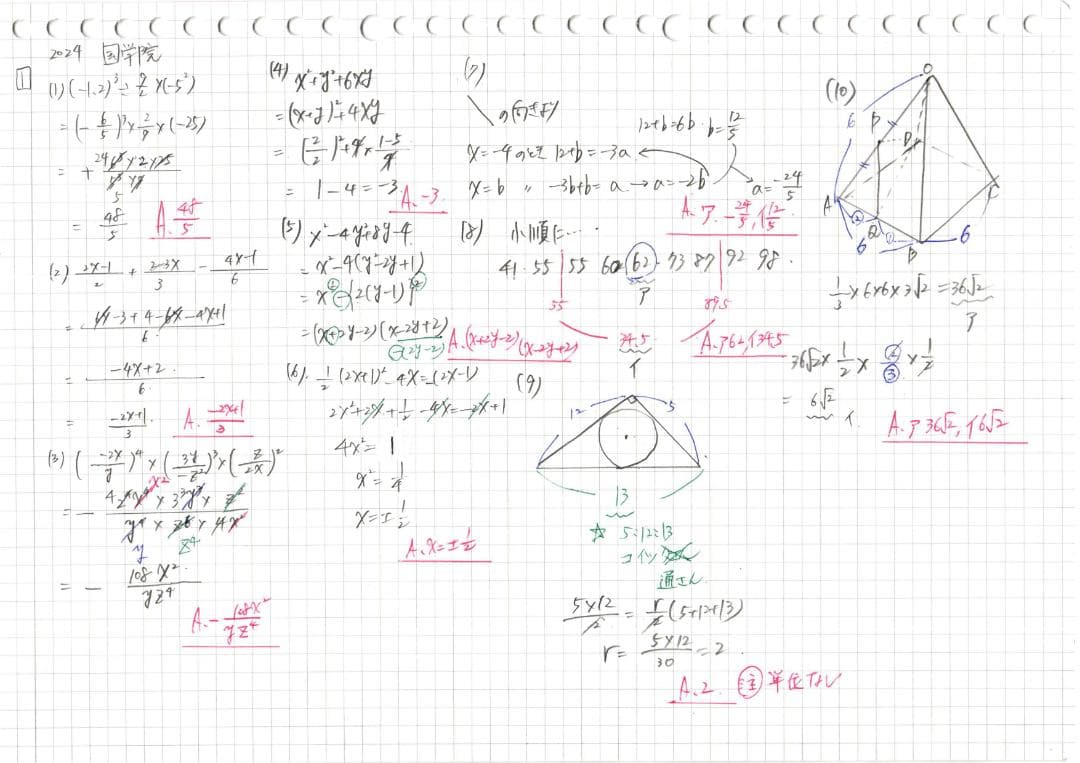 2024 国学院
1
(1) (-1.2)³ ÷ 9/2 × (-5²)
= (-6/5)³ × 2/9 × (-25)
5
= 48/5
A. 48/5
(2) 2x-1/2 + 2-3x/3 - 4x-1/6
= 6x-3+4-6x-4x+1/6
= -4x+2/6
= -2x+1/3
A. -2x+1/3
(3) (-2x/y)⁴ × (3y/-z²)³ × (z/2x)²
y z⁴
= - 108x²/yz⁴
A. - 108x²/yz⁴
(4) x²+y²+6xy
= (x+y)²+4xy
= (2/2)²+4×1-5/4
= 1-4=-3
A. -3
(5) x²-4y²+8y-4
= x²-4(y²-2y+1)
= x²-{2(y-1)}²
= (x+2y-2)(x-2y+2)
-(2y-2)
A. (x+2y-2)(x-2y+2)
(6) 1/2(2x+1)²-4x=-(2x-1)
2x²+2x+1/2-4x=-2x+1
4x²=1
x²=1/4
x=±1/2
A. x=±1/2
(7)
の向きより
12+b=6b b=12/5
x=-4のとき 12+b=-3a
x=b 〃 -3b+b=a→a=-2b
a=-24/5
A. ア. -24/5, イ 12/5
(8) 小順に…
41 55 55 60 62 73 87 92 98
ア
55 89.5
34.5
イ
A. ア62, イ34.5
(9)
12 5
13
☆ 5:12:13
コイツ
通さん
5×12/2 = r/2(5+12+13)
r= 5×12/30 =2
A. 2 注 単位なし
(10)
O
6 P
D
A C
② Q ① B
6 6
1/3×6×6×3√2=36√2
ア
36√2×1/2×②/③×1/2
= 6√2
イ
A. ア36√2, イ6√2